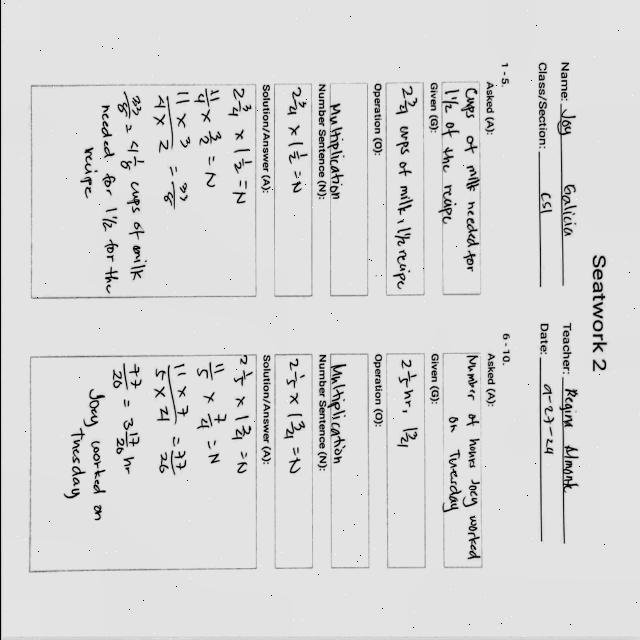 Seatwork 2
Name: Joy Galicia Teacher: Regine Almonte
Class/Section: CS1 Date: 9-27-24
1 - 5.
Asked (A):
Cups of milk needed for
1 1/2 of the recipe
Given (G):
2 3/4 cups of milk, 1 1/2 recipe
Operation (O):
Multiplication
Number Sentence (N):
2 3/4 x 1 1/2 = N
Solution/Answer (A):
2 3/4 x 1 1/2 = N
11/4 x 3/2 = N
11 x 3 / 4 x 2 = 33/8
33/8 = 4 1/8 cups of milk
needed for 1 1/2 for the
recipe
6 - 10.
Asked (A):
Number of hours Joey worked
on Tuesday
Given (G):
2 1/5 hr, 1 3/4
Operation (O):
Multiplication
Number Sentence (N):
2 1/5 x 1 3/4 = N
Solution/Answer (A):
2 1/5 x 1 3/4 = N
11/5 x 7/4 = N
11 x 7 / 5 x 4 = 77/20
77/20 = 3 17/20 hr
Joey worked on
Tuesday